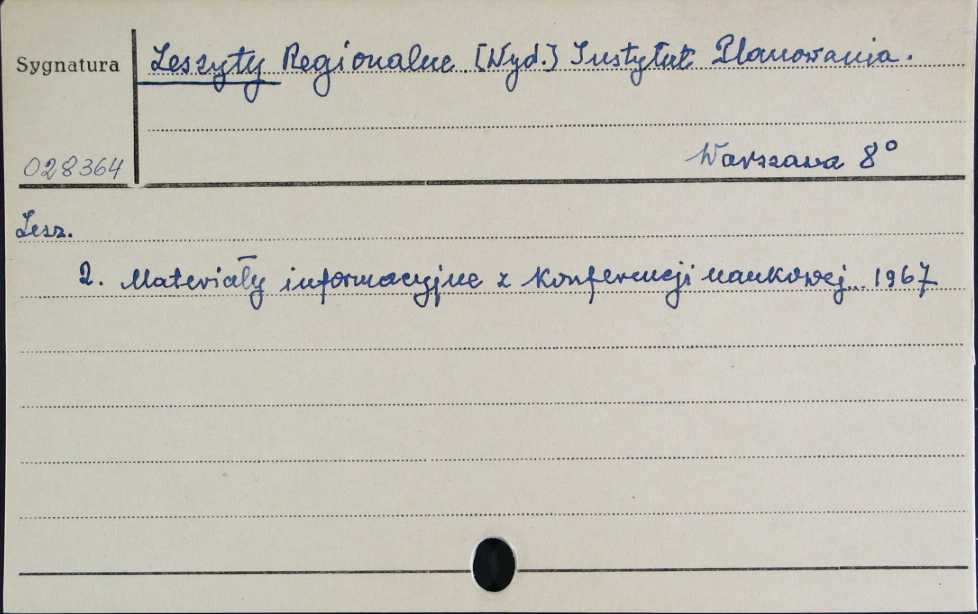 Sygnatura
Zeszyty Regionalne [Wyd.] Instytut Planowania.
028364
Warszawa 8°
Zesz.
2. Materiały informacyjne z konferencji naukowej. 1967